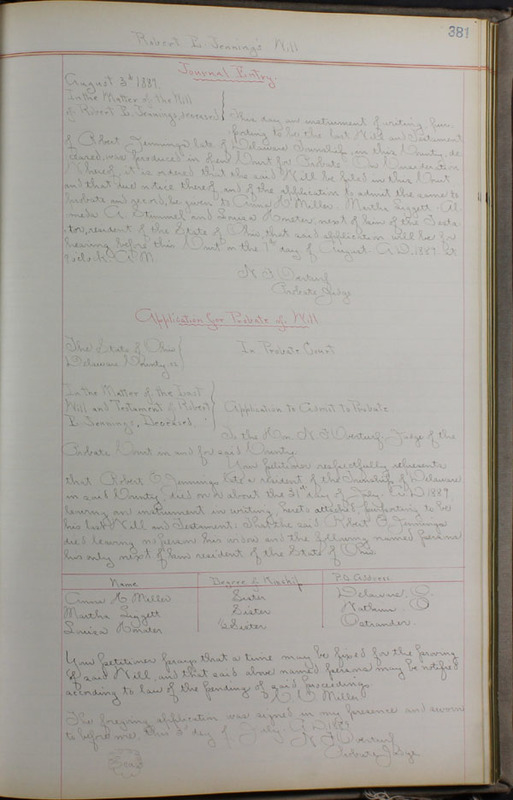 381
Robert B. Jennings Will
Journal Entry.
August 3d 1889.
In the Matter of the Will
of Robert B. Jennings, deceased.
This day an instrument of writing, pur-
porting to be the last Will and Testament
of Robert Jennings late of Delaware Township, in this County, de-
ceased, was produced in open Court for Probate. On Consideration
whereof, it is ordered that the said Will be filed in this Court
and that due notice thereof, and of the application to admit the same to
Probate and record, be given to Anna C Miller, Martha Liggett, Al-
meda A. and Louisa next of kin of the Testa-
tor, resident of the State of Ohio, that said application will be for
hearing before this Court on the 7th day of August A.D. 1889 at
o'clock A.M.
N. F. Overturf
Probate Judge
Application for Probate of Will
The State of Ohio
Delaware County ss
In Probate Court
In the Matter of the Last
Will and Testament of Robert
B. Jennings, Deceased.
Application to Admit to Probate.
To the Hon. N. F. Overturf, Judge of the
Probate Court in and for said County.
Your petitioner respectfully represents
that Robert B Jennings late a resident of the Township of Delaware
in said County, died on or about the 31st day of July, A.D. 1889
leaving an instrument in writing, hereto attached, purporting to be
his last Will and Testament: That the said Robert B Jennings
died leaving no person his widow and the following named persons
his only next of kin resident of the State of Ohio.
Name Degree of Kinship P.O. Address
Anna C Miller Sister Delaware, O.
Martha Liggett Sister O
Louisa Sister Ostrander
Your petitioner prays that a time may be fixed for the proving
of said Will, and that said above named persons may be notified
according to law of the pending of said proceedings.
Miller
The foregoing application was signed in my presence and sworn
to before me, this 3d day of July, A.D. 1889
N F Overturf
Probate Judge